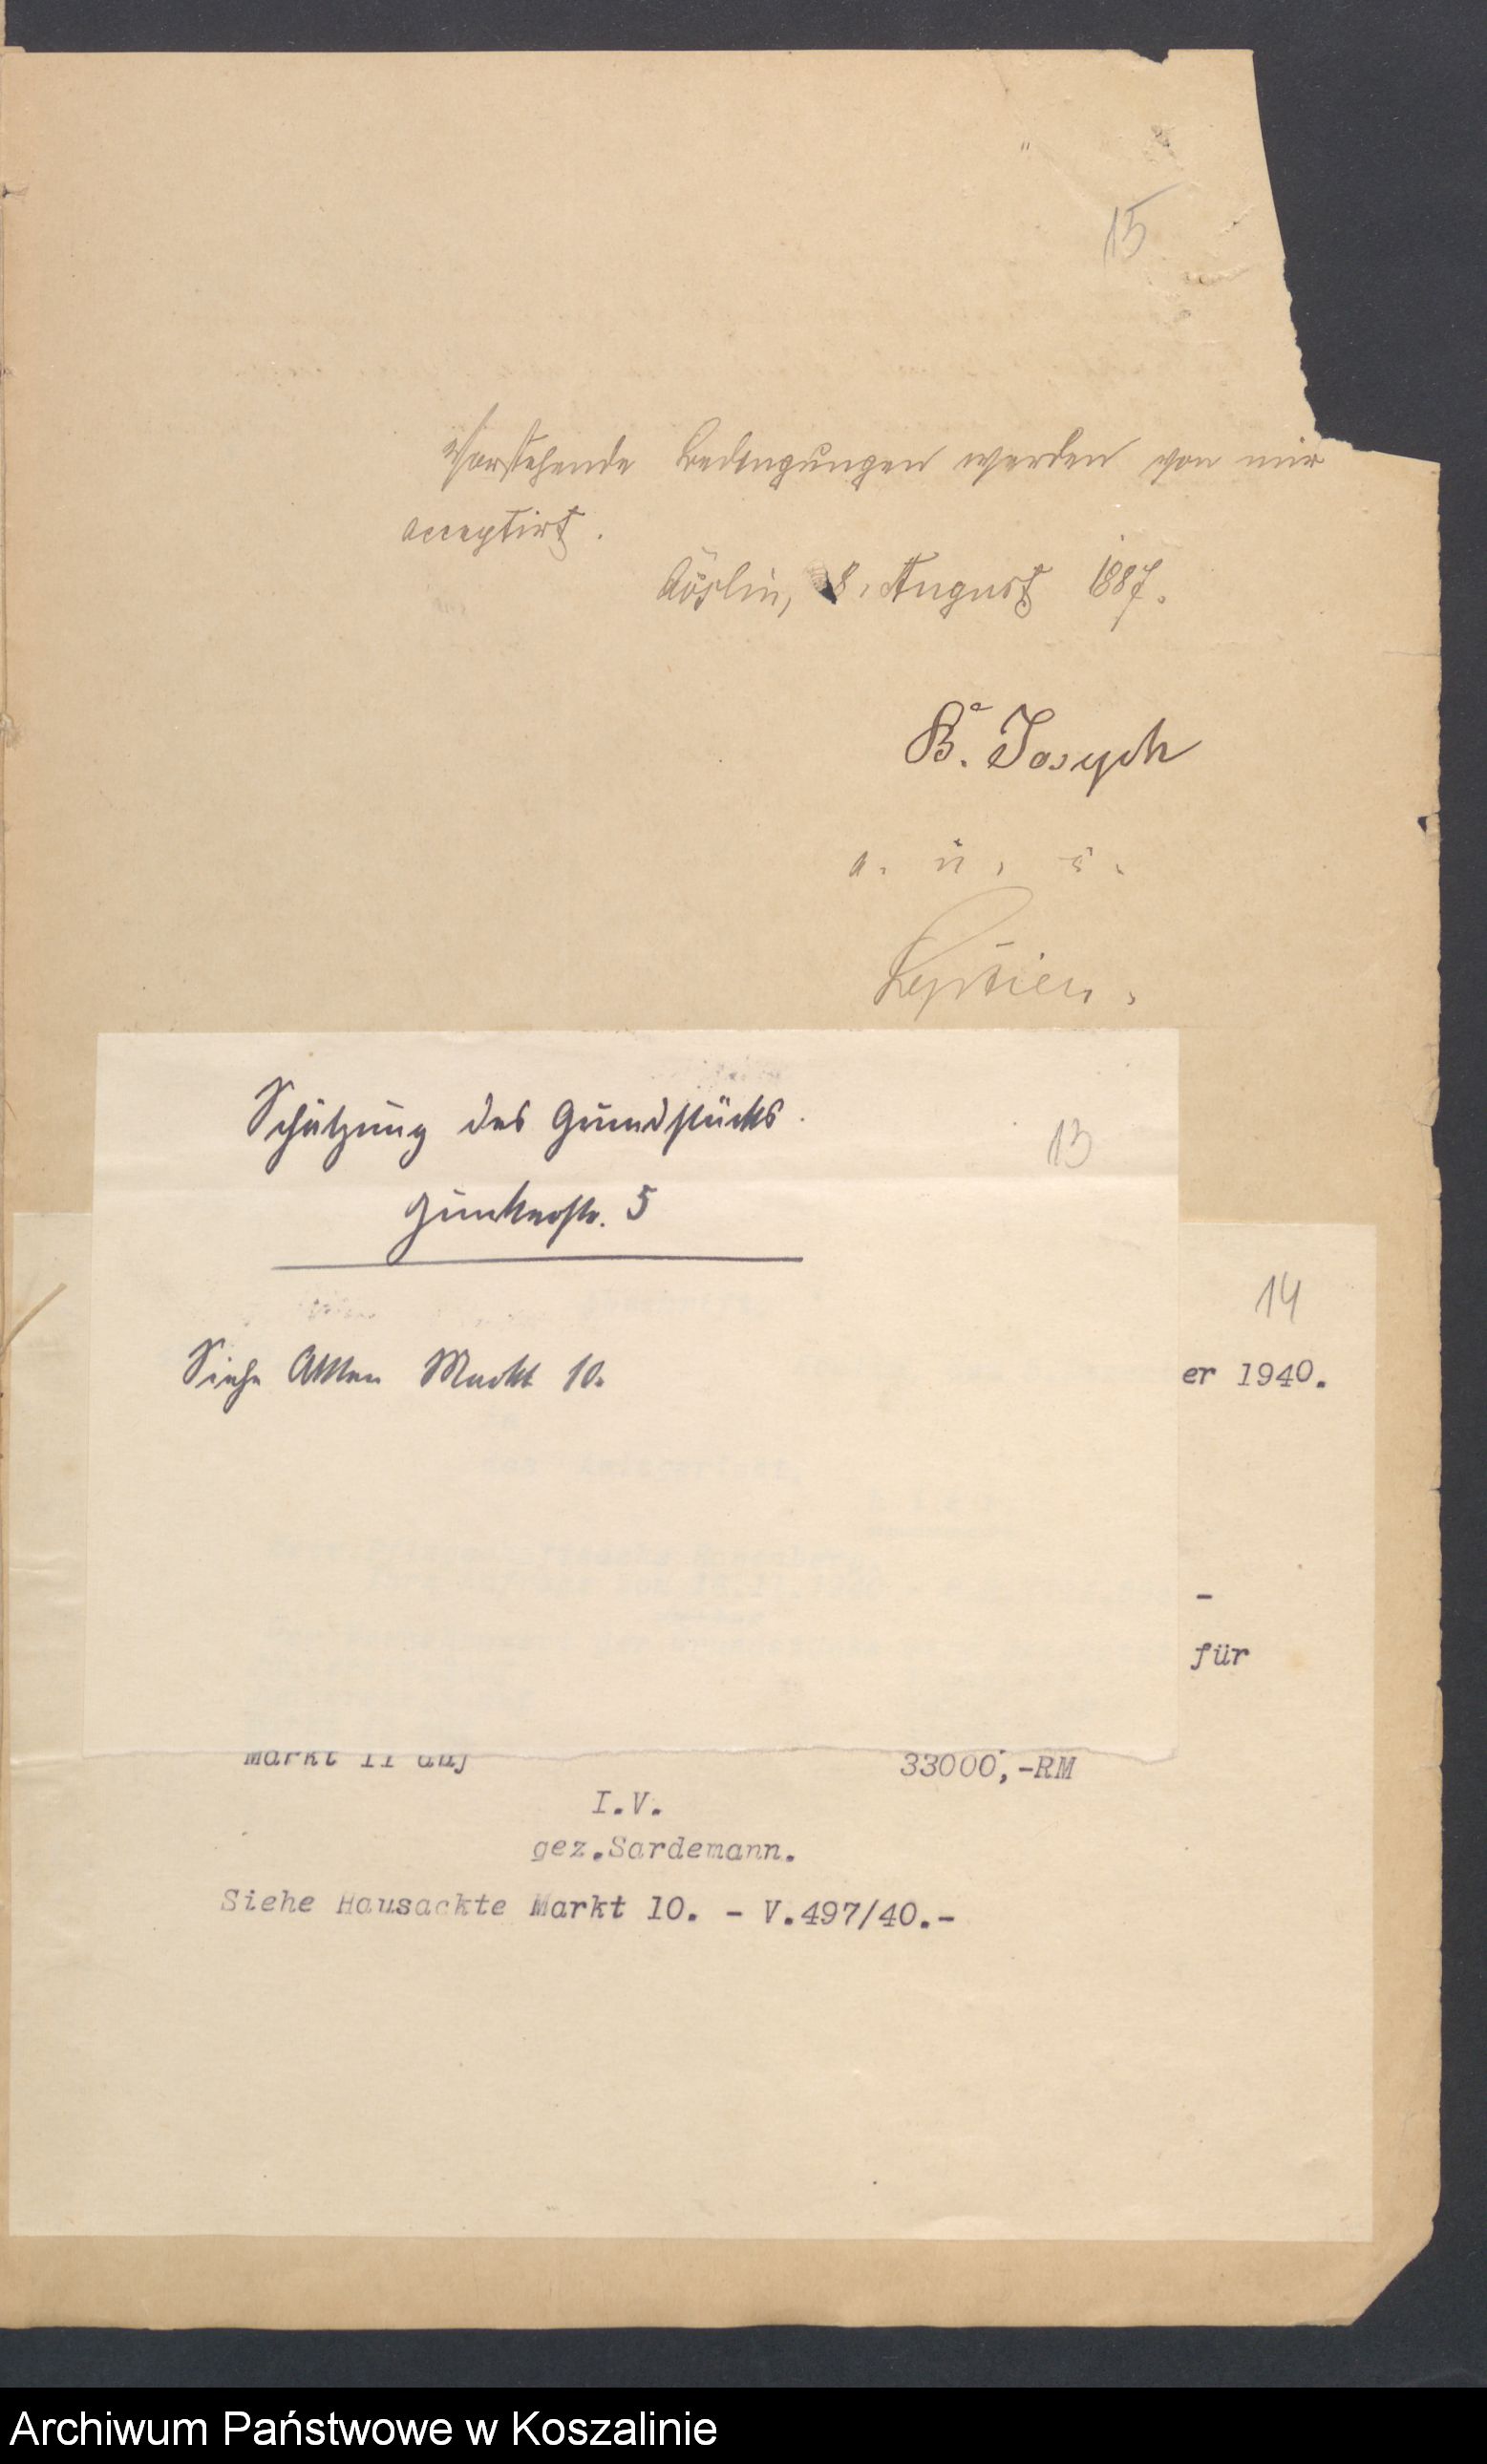 15
Vorstehende Bedingungen werden von mir
acceptirt.
Cöslin, 8. August 1887.
B. Joseph
a. u. s.
Schätzung des Grundstücks.
13
Junkerstr. 5
14
Siehe Akten Markt 10.
er 1940.
-
für
Markt 11 auf 33000,-RM
I.V.
gez.Sardemann.
Siehe Hausackte Markt 10. - V.497/40.-
Archiwum Państwowe w Koszalinie